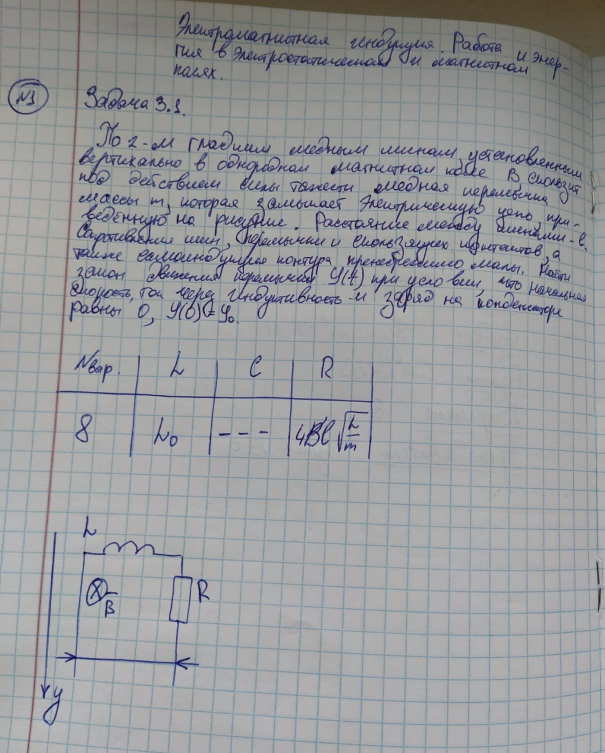 Электромагнитная индукция. Работа и энер-
гия в электростатическом и магнитном
полях.
№1
Задача 3.1.
По 2-м гладким медным шинам, установленным
вертикально в однородном магнитном поле B скользит
под действием силы тяжести медная перемычка
массы m, которая замыкает электрическую цепь, при-
ведённую на рисунке. Расстояние между шинами - l.
Сопротивления шин, перемычки и скользящих контактов, а
также самоиндукция контура пренебрежимо малы. Найти
закон движения перемычки y(t) при условии, что начальная
скорость, ток через индуктивность и заряд на конденсаторе
равны 0, y(0)=y₀.
Nвар. L C R
8 L₀ --- 4Bl√(L/m)
L
B R
y